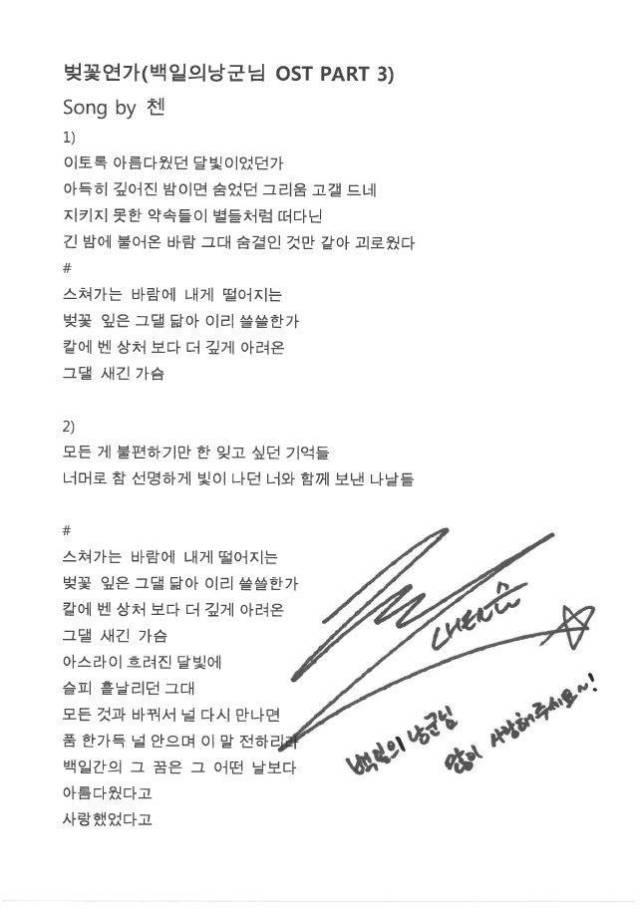 벚꽃연가(백일의낭군님 OST PART 3)
Song by 첸
1)
이토록 아름다웠던 달빛이었던가
아득히 깊어진 밤이면 숨었던 그리움 고갤 드네
지키지 못한 약속들이 별들처럼 떠다닌
긴 밤에 불어온 바람 그대 숨결인 것만 같아 괴로웠다
#
스쳐가는 바람에 내게 떨어지는
벚꽃 잎은 그댈 닮아 이리 쓸쓸한가
칼에 벤 상처 보다 더 깊게 아려온
그댈 새긴 가슴
2)
모든 게 불편하기만 한 잊고 싶던 기억들
너머로 참 선명하게 빛이 나던 너와 함께 보낸 나날들
#
스쳐가는 바람에 내게 떨어지는
벚꽃 잎은 그댈 닮아 이리 쓸쓸한가
칼에 벤 상처 보다 더 깊게 아려온
그댈 새긴 가슴
아스라이 흐려진 달빛에
슬피 흩날리던 그대
모든 것과 바꿔서 널 다시 만나면
품 한가득 널 안으며 이 말 전하리라
백일간의 그 꿈은 그 어떤 날보다
아름다웠다고
사랑했었다고
CHEN
백일의 낭군님
많이 사랑해주세요~!